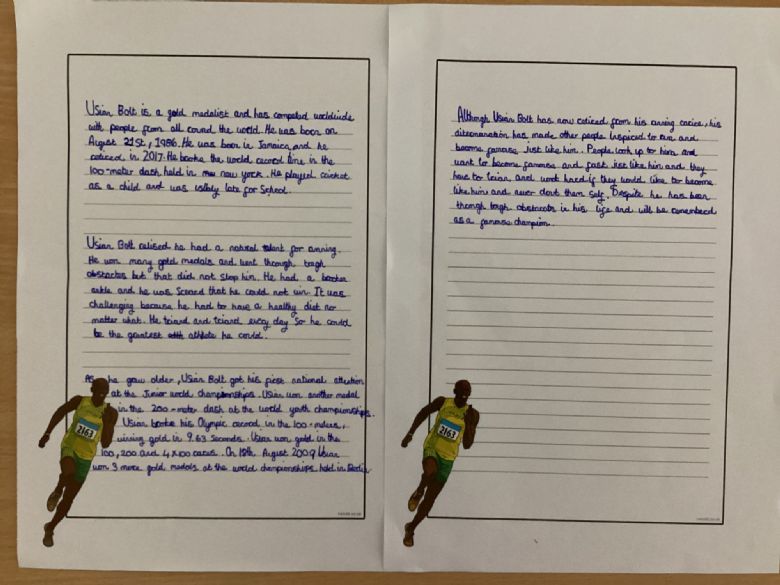 Usian Bolt is a gold medalist and has competed worldwide
with people from all around the world. He was born on
August 21st, 1986. He was born in Jamaica, and he
retired in 2017. He broke the world record time in the
100-meter dash held in new york. He played cricket
as a child and was usally late for School.
Usian Bolt relised he had a natural talent for running.
He won many gold medals and went through tough
obstacles but that did not stop him. He had a broken
ankle and he was Scared that he could not win. It was
challenging because he had to have a healthy diet no
matter what. He traind and traind every day So he could
be the greatest athlete he could.
As he grew older, Usian Bolt got his first national attention
at the Junior world championships. Usian won another medal
in the 200-meter dash at the world youth championships.
Usian broke his Olympic record in the 100-meters,
wining gold in 9.63 Seconds. Usian won gold in the
100, 200 and 4x100 races. On 18th August 2009 Usian
won 3 more gold medals at the world championships held in
2163
twinkl.co.uk
Although Usian Bolt has now retired from his running carire, his
has made other people Inspired to run and
become famouse just like him. People look up to him and
want to become famouse and fast just like him and they
have to train and work hard if they would like to become
like him and never dout them self. Despite he has been
through tough in his life and will be remembered
as a famouse champion.
2163
twinkl.co.uk